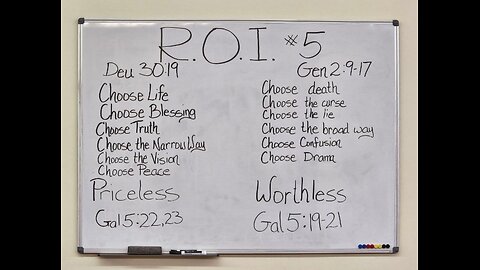 R.O.I. #5
Deu 30:19
Choose Life
Choose Blessing
Choose Truth
Choose the Narrow Way
Choose the Vision
Choose Peace
Priceless
Gal 5:22,23
Gen 2:9-17
Choose death
Choose the curse
Choose the lie
Choose the broad way
Choose Confusion
Choose Drama
Worthless
Gal 5:19-21